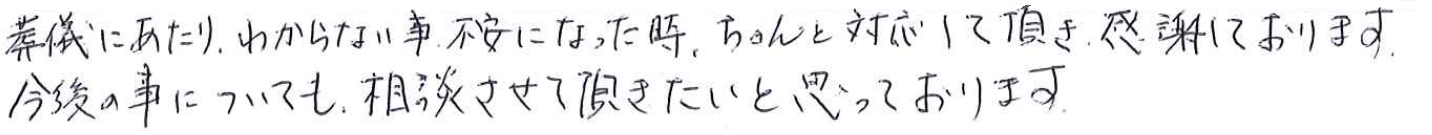 葬儀にあたり、わからない事、不安になった時、ちゃんと対応して頂き、感謝しております。
今後の事についても、相談させて頂きたいと思っております。